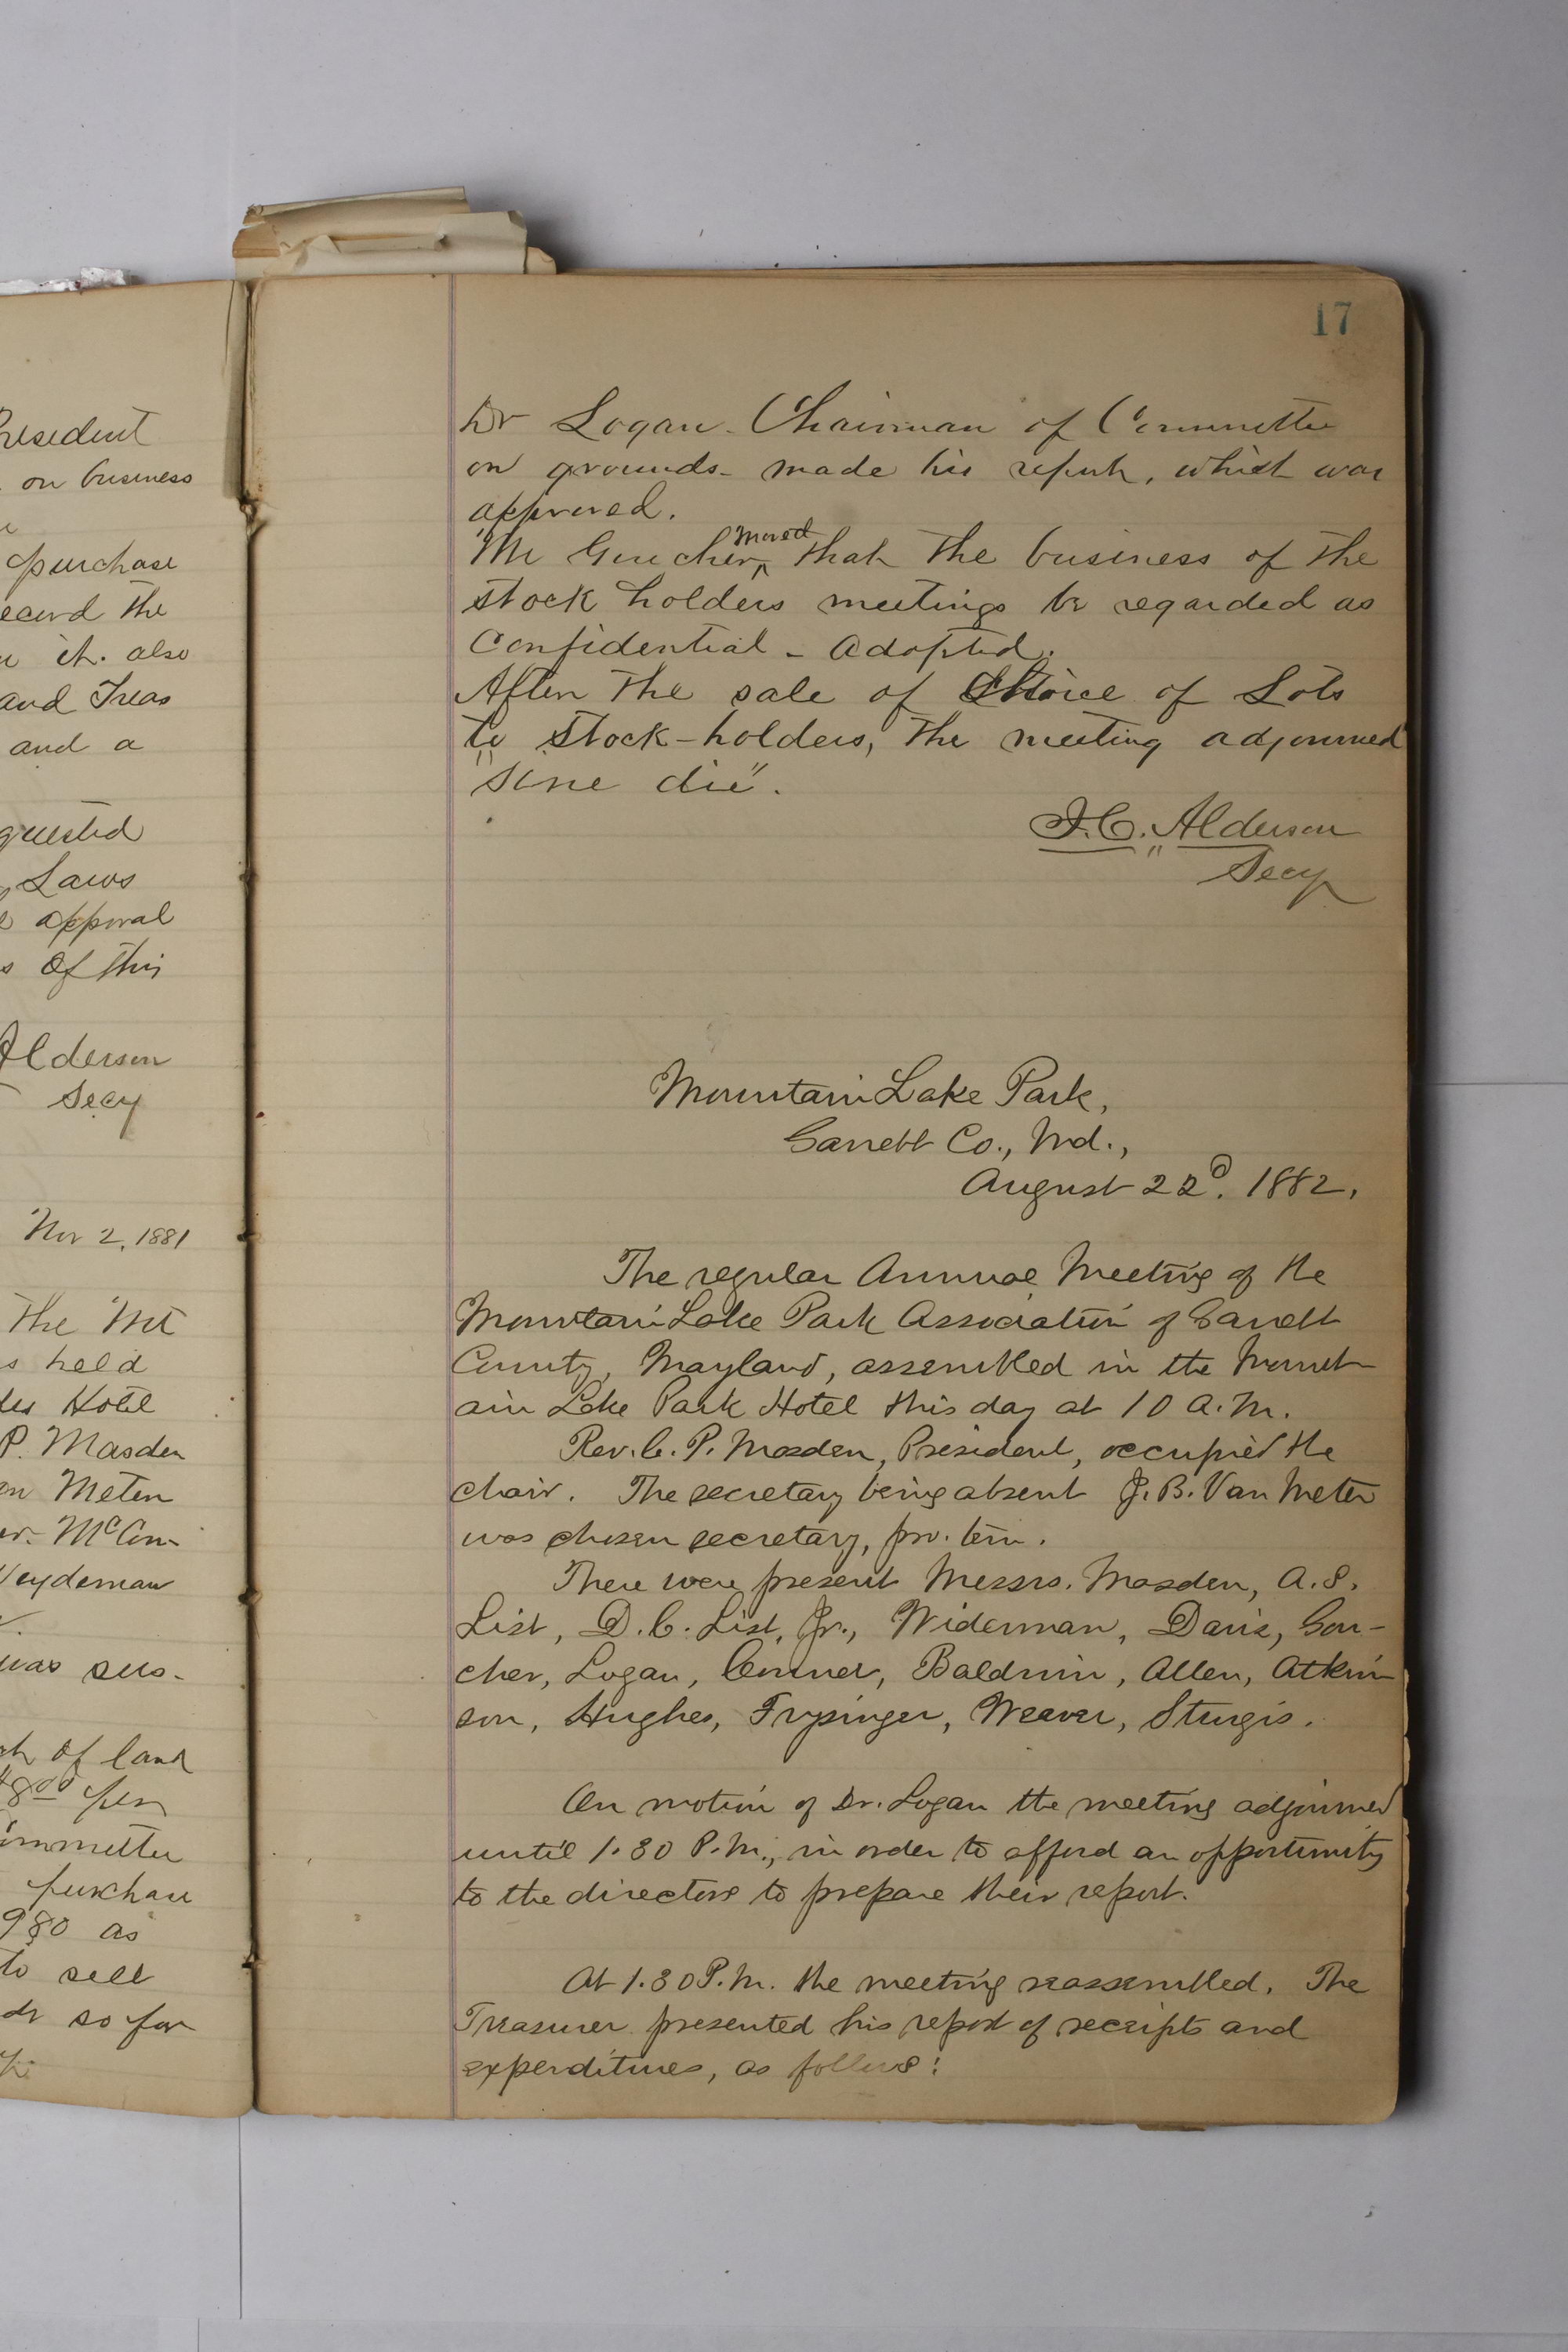 resident
on business
purchase
ecord the
it. also
and Treas
and a
quested
Laws
apporal
s Of this
Alderson
Secy
Nov 2, 1881
The Mt
s held
Hotel
P. Masden
Meten
Weydeman
was sus-
of land
$8.00 per
ommittee
purchase
980 as
to sell
so far
17
Dr Logan - Chairman of Committee
on grounds - made his report, which was
approved.
Mr Goucher, moved that the business of the
stock holders meetings be regarded as
Confidential - Adopted.
After the sale of Choice of Lots
to stock-holders, the meeting adjourned
"sine die".
J. C. Alderson
Secy
Mountain Lake Park,
Garrett Co., Md.,
August 22d. 1882.
The regular Annual Meeting of the
Mountain Lake Park Association of Garrett
County, Mayland, assembled in the Mount-
ain Lake Park Hotel this day at 10 A.M.
Rev. C. P. Masden, President, occupied the
chair. The secretary being absent J. B. Van Meter
was chosen secretary, pro. tem.
There were present Messrs. Masden, A. S.
List, D. C. List, Jr., Widerman, Davis, Gou-
cher, Logan, Conner, Baldwin, Allen, Atkin-
son, Hughes, Frysinger, Weaver, Sturgis.
On motion of Dr. Logan the meeting adjourned
until 1.30 P.M., in order to afford an opportunity
to the directors to prepare their report.
At 1.30 P.M. the meeting reassembled. The
Treasurer presented his report of receipts and
expenditures, as follows: